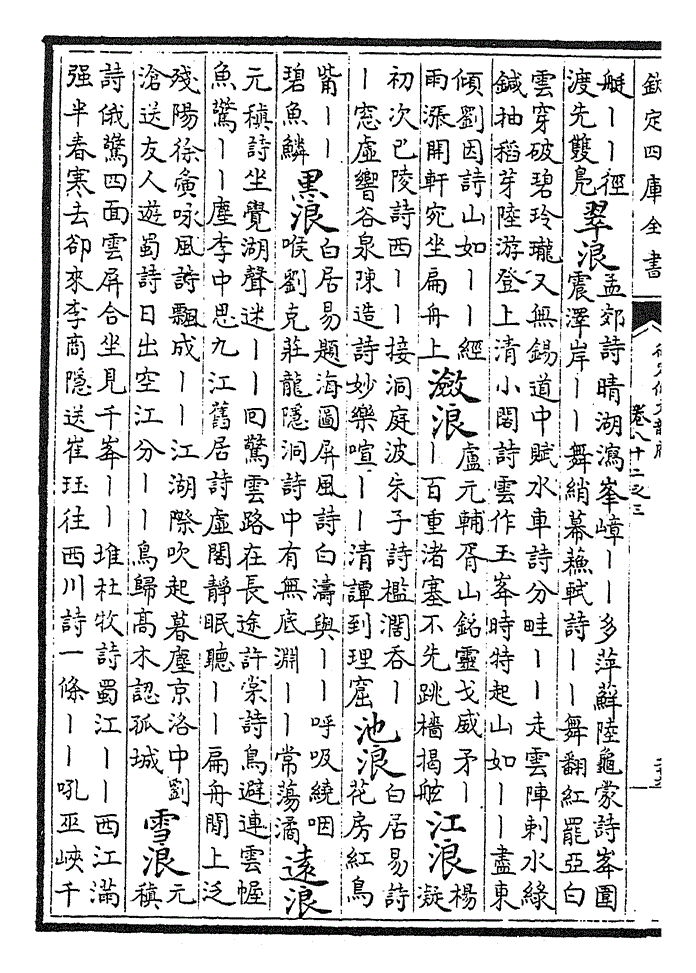 欽定四庫全書
御定佩文韻府
卷八十二之三
艇丨丨徑
渡先雙鳧
翠浪
孟郊詩晴湖瀉峯嶂丨丨多萍蘚陸龜蒙詩峯圍
震澤岸丨丨舞綃幕蘇軾詩丨丨舞翻紅罷亞白
雲穿破碧玲瓏又無錫道中賦水車詩分畦丨丨走雲陣刺水綠
鍼抽稻芽陸游登上清小閣詩雲作玉峯時特起山如丨丨盡東
傾劉因詩山如丨丨經
雨漲開軒宛坐扁舟上
瀲浪
盧元輔胥山銘靈戈威矛丨
丨百重渚塞不先跳檣揭舷
江浪
楊
凝
初次巴陵詩西丨丨接洞庭波朱子詩檻濶吞丨
丨窓虛響谷泉陳造詩妙樂喧丨丨清譚到理窟
池浪
白居易詩
花房紅鳥
觜丨丨
碧魚鱗
黑浪
白居易題海圖屏風詩白濤與丨丨呼吸繞咽
喉劉克莊龍隱洞詩中有無底淵丨丨常蕩潏
遠浪
元稹詩坐覺湖聲迷丨丨回驚雲路在長途許棠詩鳥避連雲幄
魚驚丨丨塵李中思九江舊居詩虛閣靜眠聽丨丨扁舟閒上泛
殘陽徐夤咏風詩飄成丨丨江湖際吹起暮塵京洛中劉
滄送友人遊蜀詩日出空江分丨丨鳥歸髙木認孤城
雪浪
元
稹
詩俄驚四面雲屏合坐見千峯丨丨堆杜牧詩蜀江丨丨西江滿
强半春寒去卻來李商隱送崔珏往西川詩一條丨丨吼巫峽千